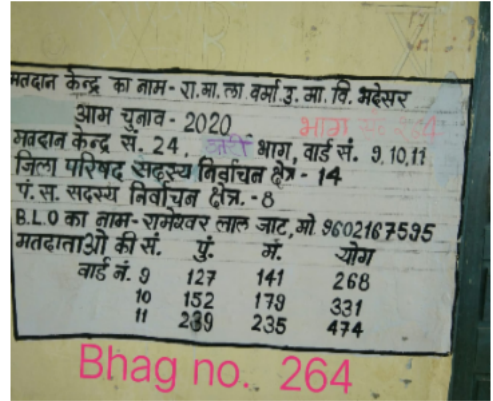 मतदान केन्द्र का नाम- रा.मा.ला वर्मा उ. मा. वि. भदेसर
आम चुनाव - 2020 भाग सं. 264
मतदान केन्द्र सं. 24, भाग, वार्ड सं. 9,10,11
जिला परिषद सदस्य निर्वाचन क्षेत्र - 14
पं. स. सदस्य निर्वाचन क्षेत्र. - 8
B.L.O का नाम- रामेश्वर लाल जाट, मो. 9602167595
मतदाताओ की सं. पुं. मं. योग
वार्ड नं. 9 127 141 268
10 152 179 331
11 239 235 474
Bhag no. 264